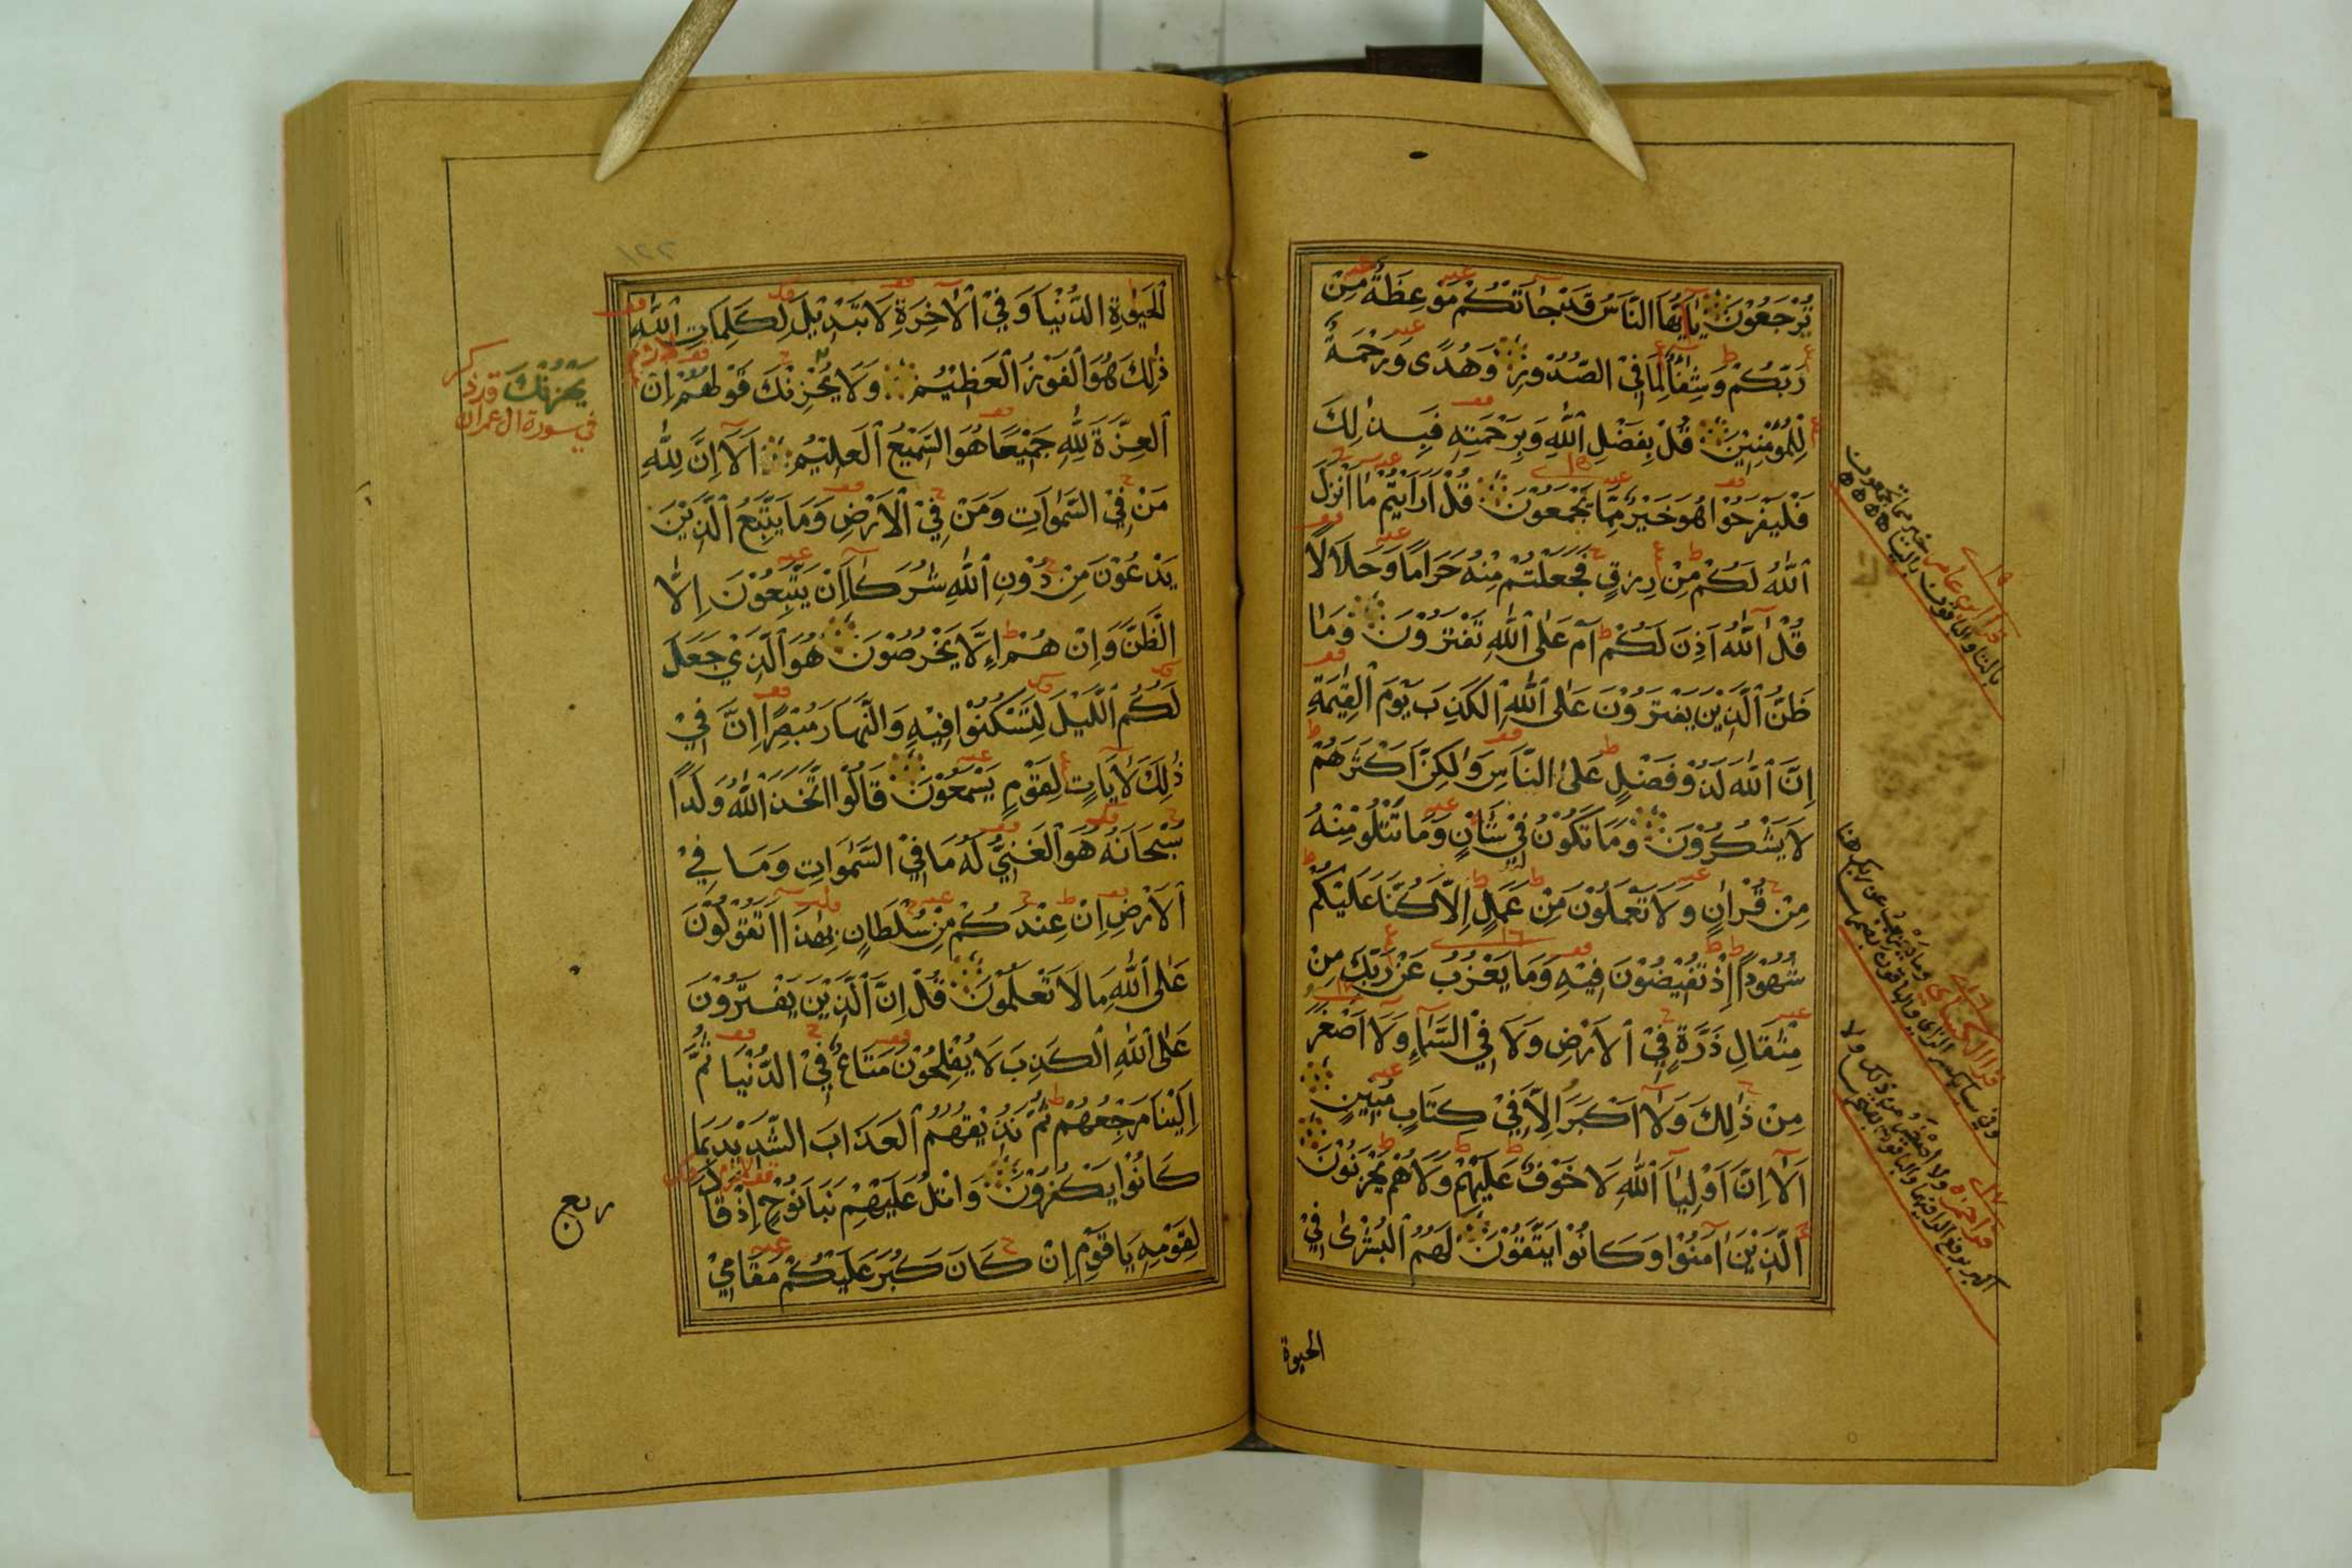 تُرْجَعُوْنَ يٰاَيُّهَا النَّاسُ قَدْ جَاۤءَتْكُمْ مَوْعِظَةٌ مِنْ
رَبِّكُمْ وَشِفَاۤءٌ لِمَا فِيْ الصُّدُوْرِ وَهُدًى وَرَحْمَةٌ
لِلْمُؤْمِنِيْنَ قُلْ بِفَضْلِ اللّٰهِ وَبِرَحْمَتِهِ فَبِذٰلِكَ
فَلْيَفْرَحُوْا هُوَ خَيْرٌ مِمَّا يَجْمَعُوْنَ قُلْ اَرَاَيْتُمْ مَا اَنْزَلَ
اللّٰهُ لَكُمْ مِنْ رِزْقٍ فَجَعَلْتُمْ مِنْهُ حَرَامًا وَحَلَالًا
قُلْ آللّٰهُ اَذِنَ لَكُمْ اَمْ عَلَى اللّٰهِ تَفْتَرُوْنَ وَمَا
ظَنُّ الَّذِيْنَ يَفْتَرُوْنَ عَلَى اللّٰهِ الْكَذِبَ يَوْمَ الْقِيٰمَةِ
اِنَّ اللّٰهَ لَذُوْ فَضْلٍ عَلَى النَّاسِ وَلٰكِنَّ اَكْثَرَهُمْ
لَا يَشْكُرُوْنَ وَمَا تَكُوْنُ فِيْ شَاْنٍ وَمَا تَتْلُوْ مِنْهُ
مِنْ قُرْاٰنٍ وَلَا تَعْمَلُوْنَ مِنْ عَمَلٍ اِلَّا كُنَّا عَلَيْكُمْ
شُهُوْدًا اِذْ تُفِيْضُوْنَ فِيْهِ وَمَا يَعْزُبُ عَنْ رَبِّكَ مِنْ
مِثْقَالِ ذَرَّةٍ فِيْ الْاَرْضِ وَلَا فِيْ السَّمَاۤءِ وَلَا اَصْغَرَ
مِنْ ذٰلِكَ وَلَا اَكْبَرَ اِلَّا فِيْ كِتَابٍ مُبِيْنٍ
اَلَا اِنَّ اَوْلِيَاۤءَ اللّٰهِ لَا خَوْفٌ عَلَيْهِمْ وَلَا هُمْ يَحْزَنُوْنَ
الَّذِيْنَ اٰمَنُوْا وَكَانُوْا يَتَّقُوْنَ لَهُمُ الْبُشْرٰى فِيْ
الحيوة
١٢٢
الْحَيٰوةِ الدُّنْيَا وَفِيْ الْاٰخِرَةِ لَا تَبْدِيْلَ لِكَلِمَاتِ اللّٰهِ
ذٰلِكَ هُوَ الْفَوْزُ الْعَظِيْمُ وَلَا يَحْزُنْكَ قَوْلُهُمْ اِنَّ
الْعِزَّةَ لِلّٰهِ جَمِيْعًا هُوَ السَّمِيْعُ الْعَلِيْمُ اَلَا اِنَّ لِلّٰهِ
مَنْ فِيْ السَّمٰوَاتِ وَمَنْ فِيْ الْاَرْضِ وَمَا يَتَّبِعُ الَّذِيْنَ
يَدْعُوْنَ مِنْ دُوْنِ اللّٰهِ شُرَكَاۤءَ اِنْ يَتَّبِعُوْنَ اِلَّا
الظَّنَّ وَاِنْ هُمْ اِلَّا يَخْرُصُوْنَ هُوَ الَّذِيْ جَعَلَ
لَكُمُ الَّيْلَ لِتَسْكُنُوْا فِيْهِ وَالنَّهَارَ مُبْصِرًا اِنَّ فِيْ
ذٰلِكَ لَاٰيَاتٍ لِقَوْمٍ يَسْمَعُوْنَ قَالُوْا اتَّخَذَ اللّٰهُ وَلَدًا
سُبْحَانَهُ هُوَ الْغَنِيُّ لَهُ مَا فِيْ السَّمٰوَاتِ وَمَا فِيْ
الْاَرْضِ اِنْ عِنْدَكُمْ مِنْ سُلْطَانٍ بِهٰذَا اَتَقُوْلُوْنَ
عَلَى اللّٰهِ مَا لَا تَعْلَمُوْنَ قُلْ اِنَّ الَّذِيْنَ يَفْتَرُوْنَ
عَلَى اللّٰهِ الْكَذِبَ لَا يُفْلِحُوْنَ مَتَاعٌ فِيْ الدُّنْيَا ثُمَّ
اِلَيْنَا مَرْجِعُهُمْ ثُمَّ نُذِيْقُهُمُ الْعَذَابَ الشَّدِيْدَ بِمَا
كَانُوْا يَكْفُرُوْنَ وَاتْلُ عَلَيْهِمْ نَبَاَ نُوْحٍ اِذْ قَالَ
لِقَوْمِهِ يَا قَوْمِ اِنْ كَانَ كَبُرَ عَلَيْكُمْ مَقَامِيْ
يحزنك قد ذكر
في سورة ال عمران
ربع